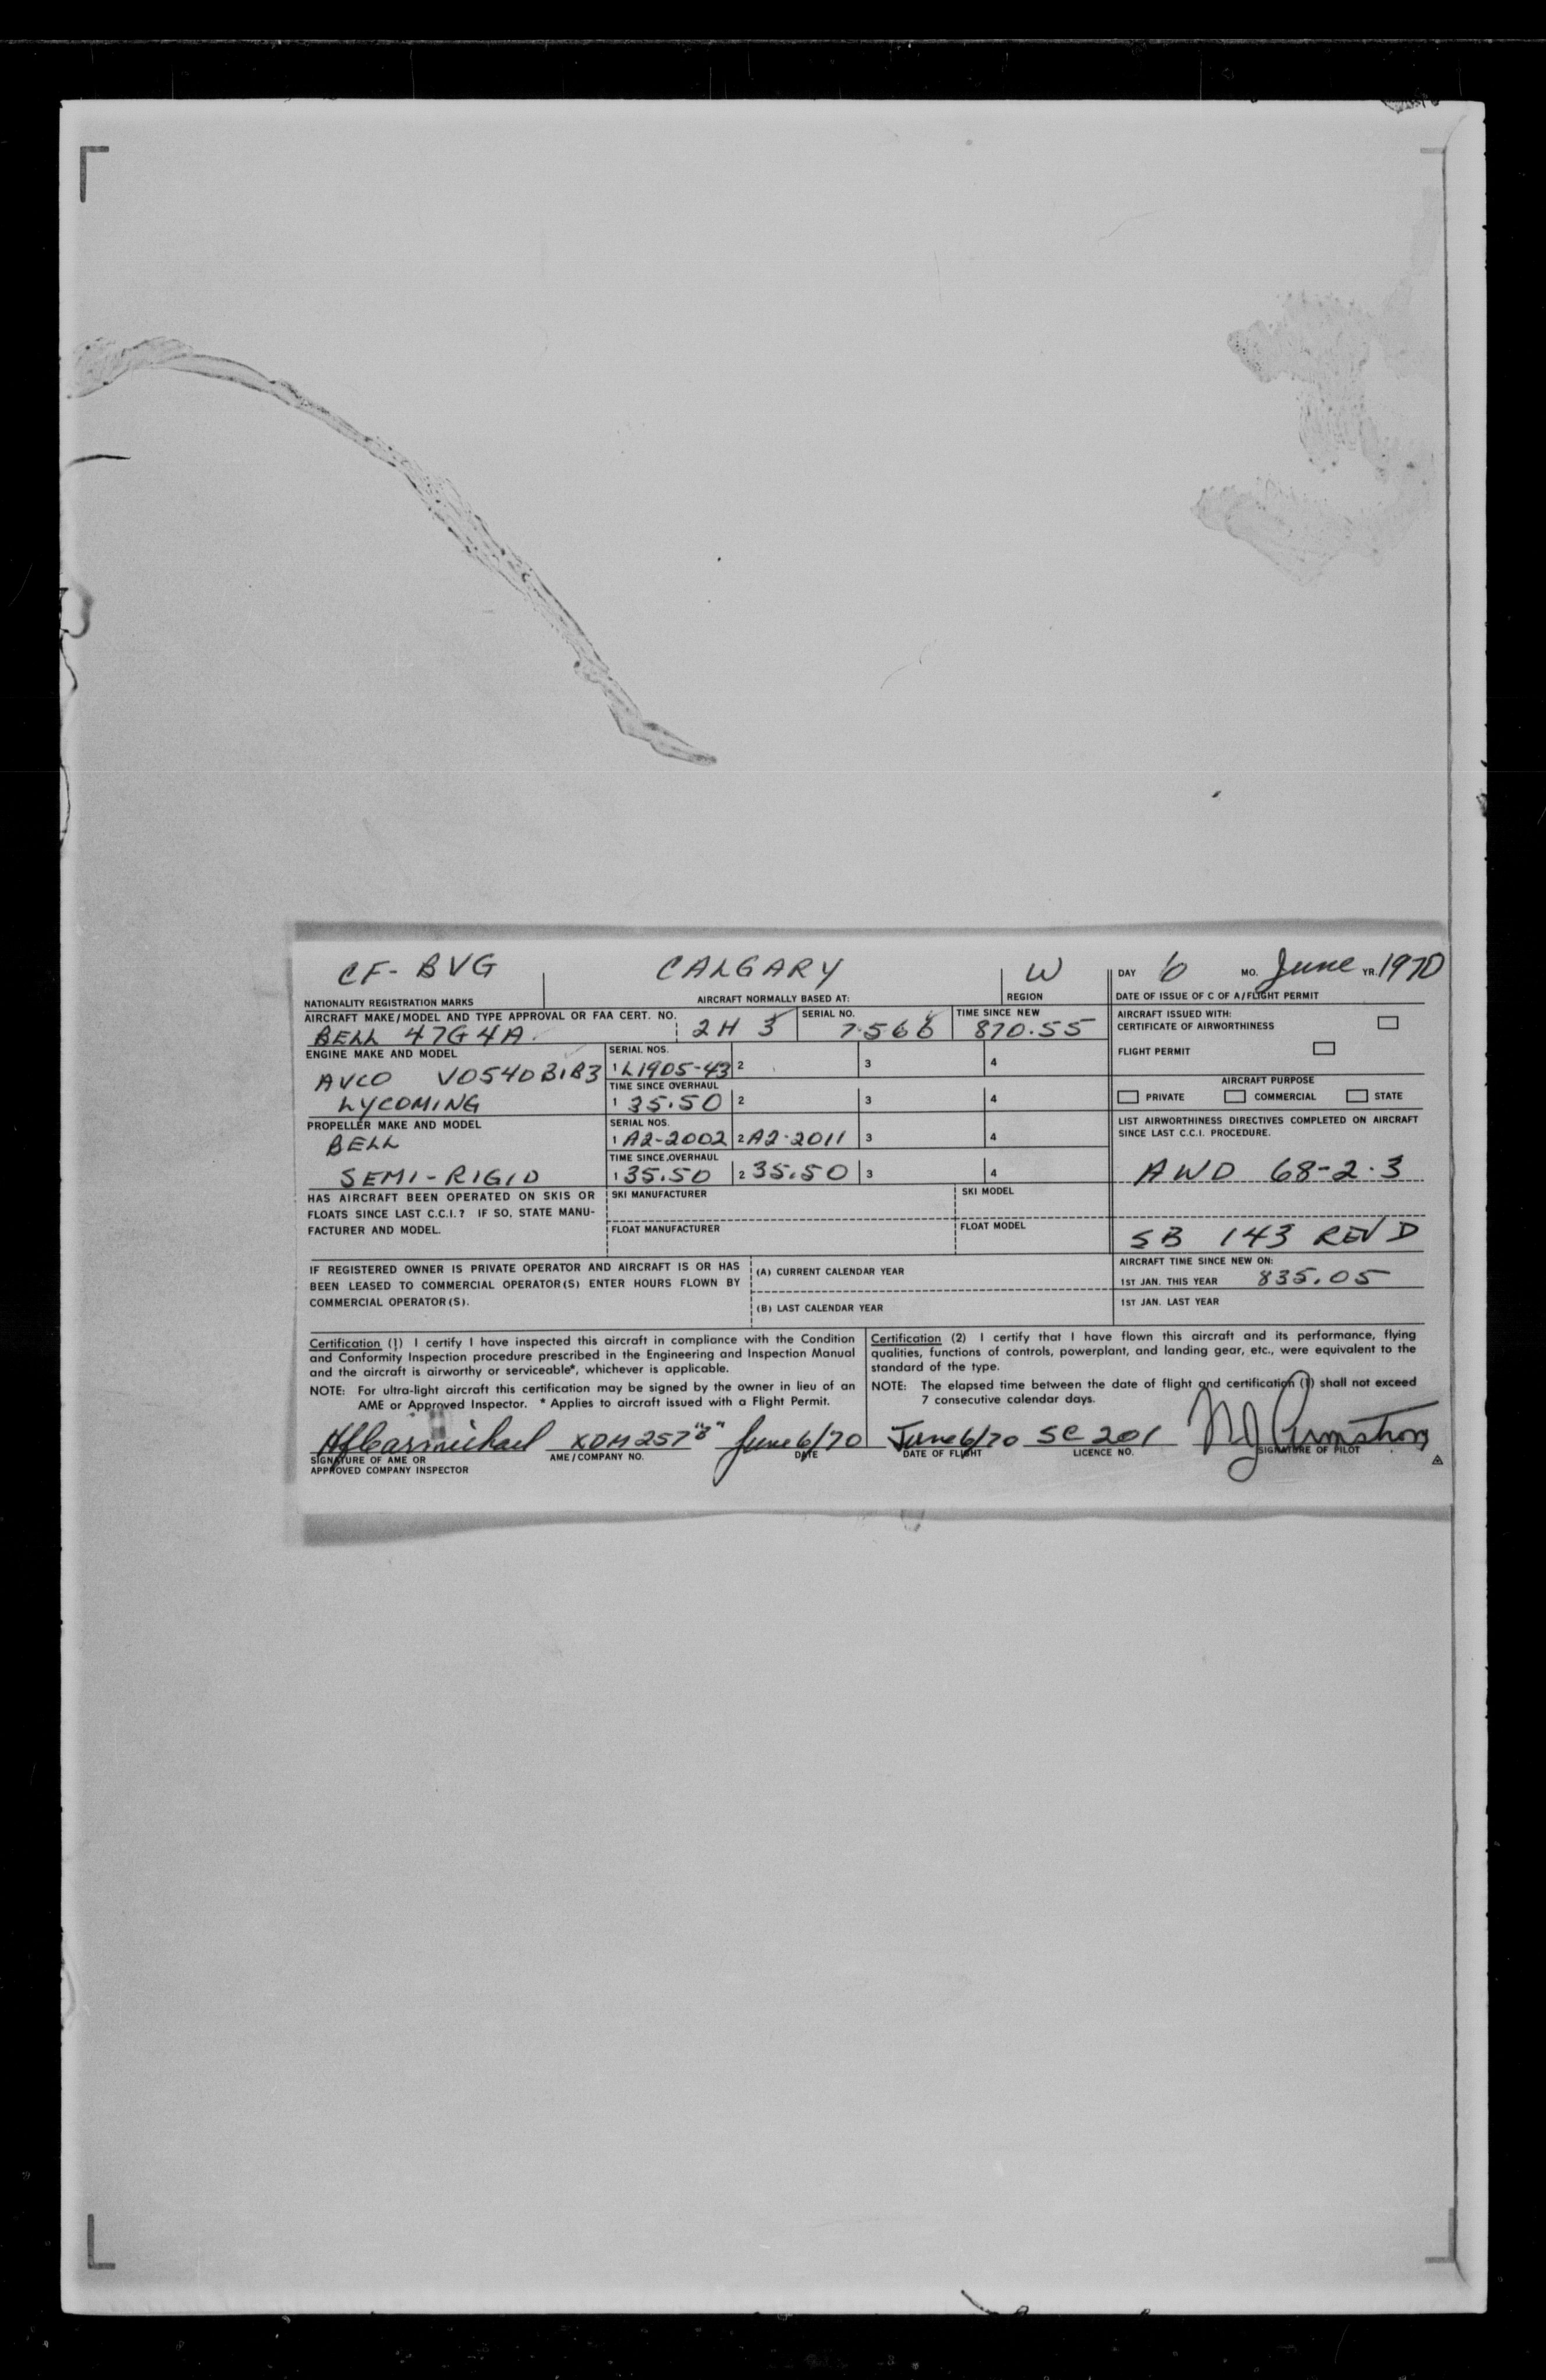 CF-BVG CALGARY W DAY 6 MO. June YR. 1970
NATIONALITY REGISTRATION MARKS AIRCRAFT NORMALLY BASED AT: REGION DATE OF ISSUE OF C OF A/FLIGHT PERMIT
AIRCRAFT MAKE/MODEL AND TYPE APPROVAL OR FAA CERT. NO. SERIAL NO. TIME SINCE NEW AIRCRAFT ISSUED WITH:
BELL 47G4A. 2H 3 7566 870.55 CERTIFICATE OF AIRWORTHINESS
ENGINE MAKE AND MODEL SERIAL NOS. FLIGHT PERMIT
AVCO VO540B1B3 1 L1905-43 2 3 4
TIME SINCE OVERHAUL AIRCRAFT PURPOSE
LYCOMING 1 35.50 2 3 4 PRIVATE COMMERCIAL STATE
PROPELLER MAKE AND MODEL SERIAL NOS. LIST AIRWORTHINESS DIRECTIVES COMPLETED ON AIRCRAFT
SINCE LAST C.C.I. PROCEDURE.
BELL 1 A2-2002 2 A2-2011 3 4
TIME SINCE OVERHAUL
SEMI-RIGID 1 35.50 2 35.50 3 4 AWD 68-2-3
HAS AIRCRAFT BEEN OPERATED ON SKIS OR SKI MANUFACTURER SKI MODEL
FLOATS SINCE LAST C.C.I.? IF SO, STATE MANU-
FACTURER AND MODEL. FLOAT MANUFACTURER FLOAT MODEL SB 143 REV D
AIRCRAFT TIME SINCE NEW ON:
IF REGISTERED OWNER IS PRIVATE OPERATOR AND AIRCRAFT IS OR HAS (A) CURRENT CALENDAR YEAR
BEEN LEASED TO COMMERCIAL OPERATOR(S) ENTER HOURS FLOWN BY 1ST JAN. THIS YEAR 835.05
COMMERCIAL OPERATOR(S). (B) LAST CALENDAR YEAR 1ST JAN. LAST YEAR
Certification (1) I certify I have inspected this aircraft in compliance with the Condition
and Conformity Inspection procedure prescribed in the Engineering and Inspection Manual
and the aircraft is airworthy or serviceable*, whichever is applicable.
NOTE: For ultra-light aircraft this certification may be signed by the owner in lieu of an
AME or Approved Inspector. * Applies to aircraft issued with a Flight Permit.
Certification (2) I certify that I have flown this aircraft and its performance, flying
qualities, functions of controls, powerplant, and landing gear, etc., were equivalent to the
standard of the type.
NOTE: The elapsed time between the date of flight and certification (1) shall not exceed
7 consecutive calendar days.
Carmichael XDM 257 "B" June 6/70 June 6/70 SC 201
SIGNATURE OF AME OR AME/COMPANY NO. DATE DATE OF FLIGHT LICENCE NO. SIGNATURE OF PILOT
APPROVED COMPANY INSPECTOR